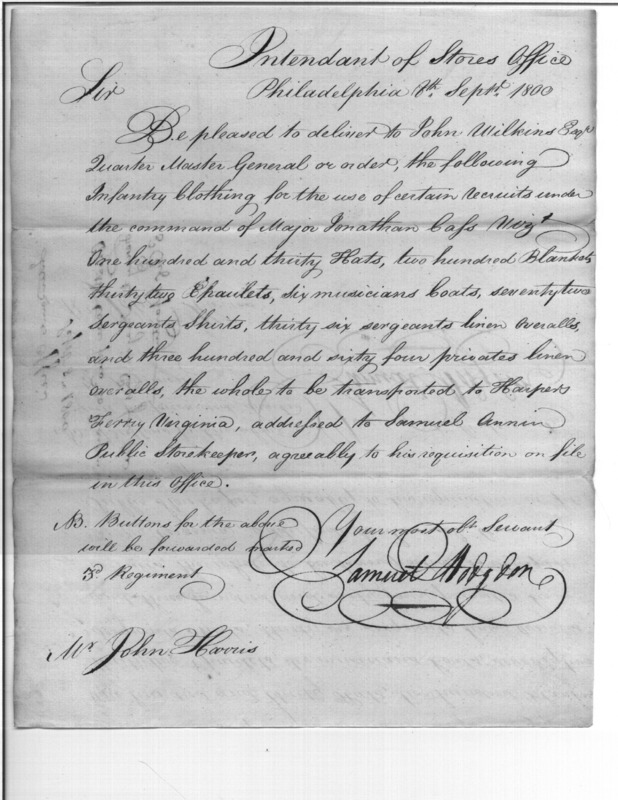 Intendant of Stores Office
Sir Philadelphia 8th. Septr. 1800
Be pleased to deliver to John Wilkins Esqr.
Quarter Master General or order, the following
Infantry Clothing for the use of certain recruits under
the command of Major Jonathan Cass Vizt
One hundred and thirty Hats, two hundred Blankets
thirty two Epaulets, six musicians Coats, seventy two
Sergeants Shirts, thirty six sergeants linen overalls,
and three hundred and sixty four privates linen
overalls, the whole to be transported to Harpers
Ferry Virginia, addressed to Samuel Annin
Public Storekeeper, agreeably to his requisition on file
in this Office.
NB. Buttons for the above
will be forwarded marked
3d. Regiment
Your most obt. Servant
Samuel Hodgdon
Mr. John Harris